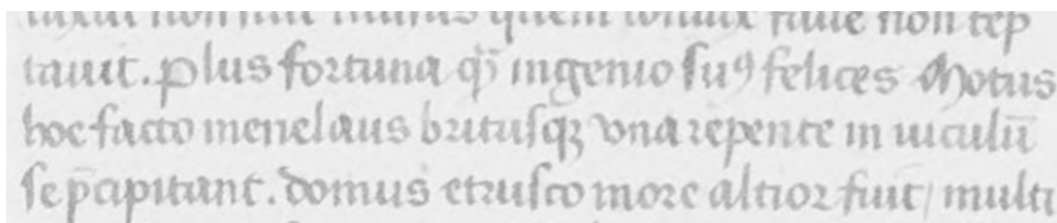 non quem non rep
tauit. Plus fortuna q̄ ingenio suꝰ felices Motus
hoc facto menelaus britusqꝫ vna repente in uiculū
se p̄cipitant. domus etrusco more altior fuit / multi